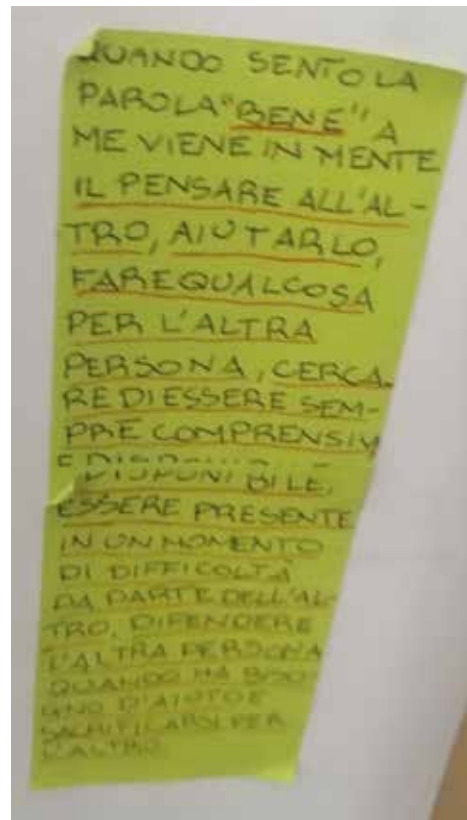 QUANDO SENTO LA
PAROLA "BENE" A
ME VIENE IN MENTE
IL PENSARE ALL'AL-
TRO, AIUTARLO,
FARE QUALCOSA
PER L'ALTRA
PERSONA, CERCA-
RE DI ESSERE SEM-
PRE COMPRENSIV
E
DISPONIBILE,
ESSERE PRESENTE
IN UN MOMENTO
DI DIFFICOLTÀ
DA PARTE DELL'AL-
TRO, DIFENDERE
L'ALTRA PERSONA
QUANDO HA BISO-
GNO D'AIUTO E
SACRIFICARSI PER
L'ALTRO.